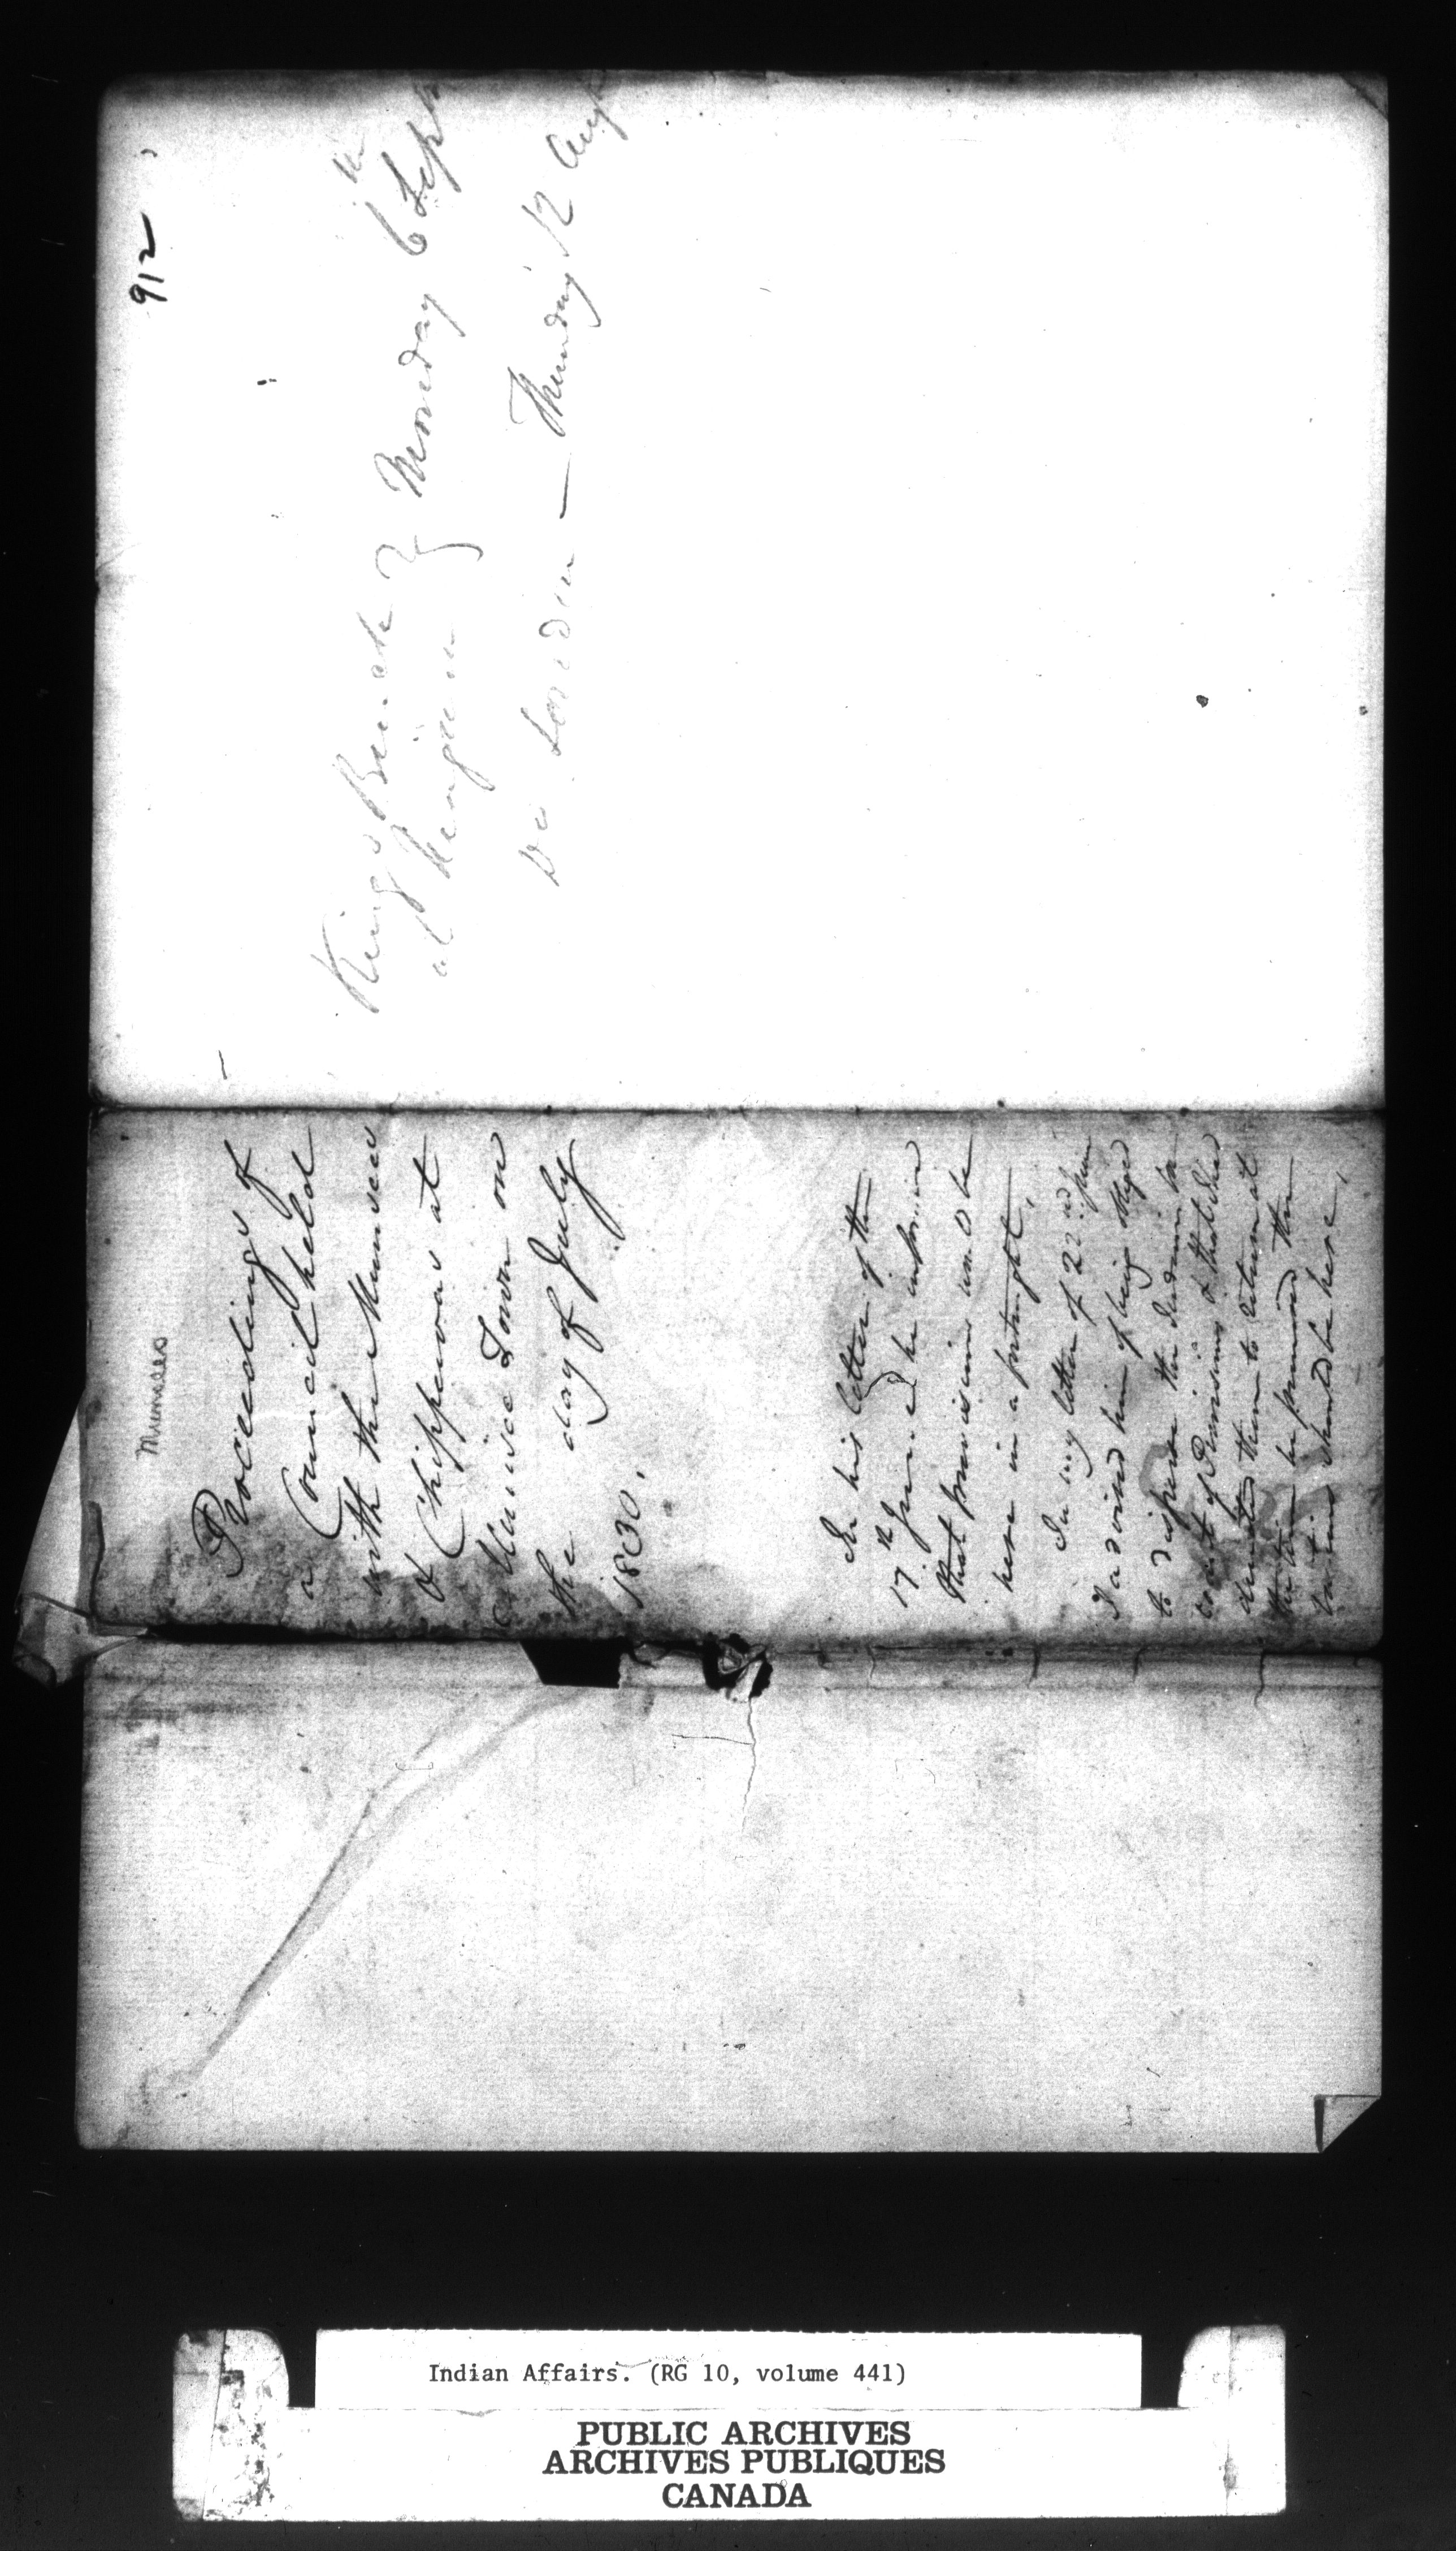 912
Kings Bench } Monday 6th Sept
at
Do London — Thursday 12 Augt
Munsees
Proceedings of
a Council held
with the Munsees
& Chippewas at
Munsee Town on
the day of July
1830.
In his letter of the
17th June he informed
that provisions would be
here in a fortnight.
In my letter of 22nd June
I advised him of being obliged
to disperse the Indians for
want of Provisions & that I had
directed them to return at
the time he promised the
should be here,
Indian Affairs. (RG 10, volume 441)
PUBLIC ARCHIVES
ARCHIVES PUBLIQUES
CANADA